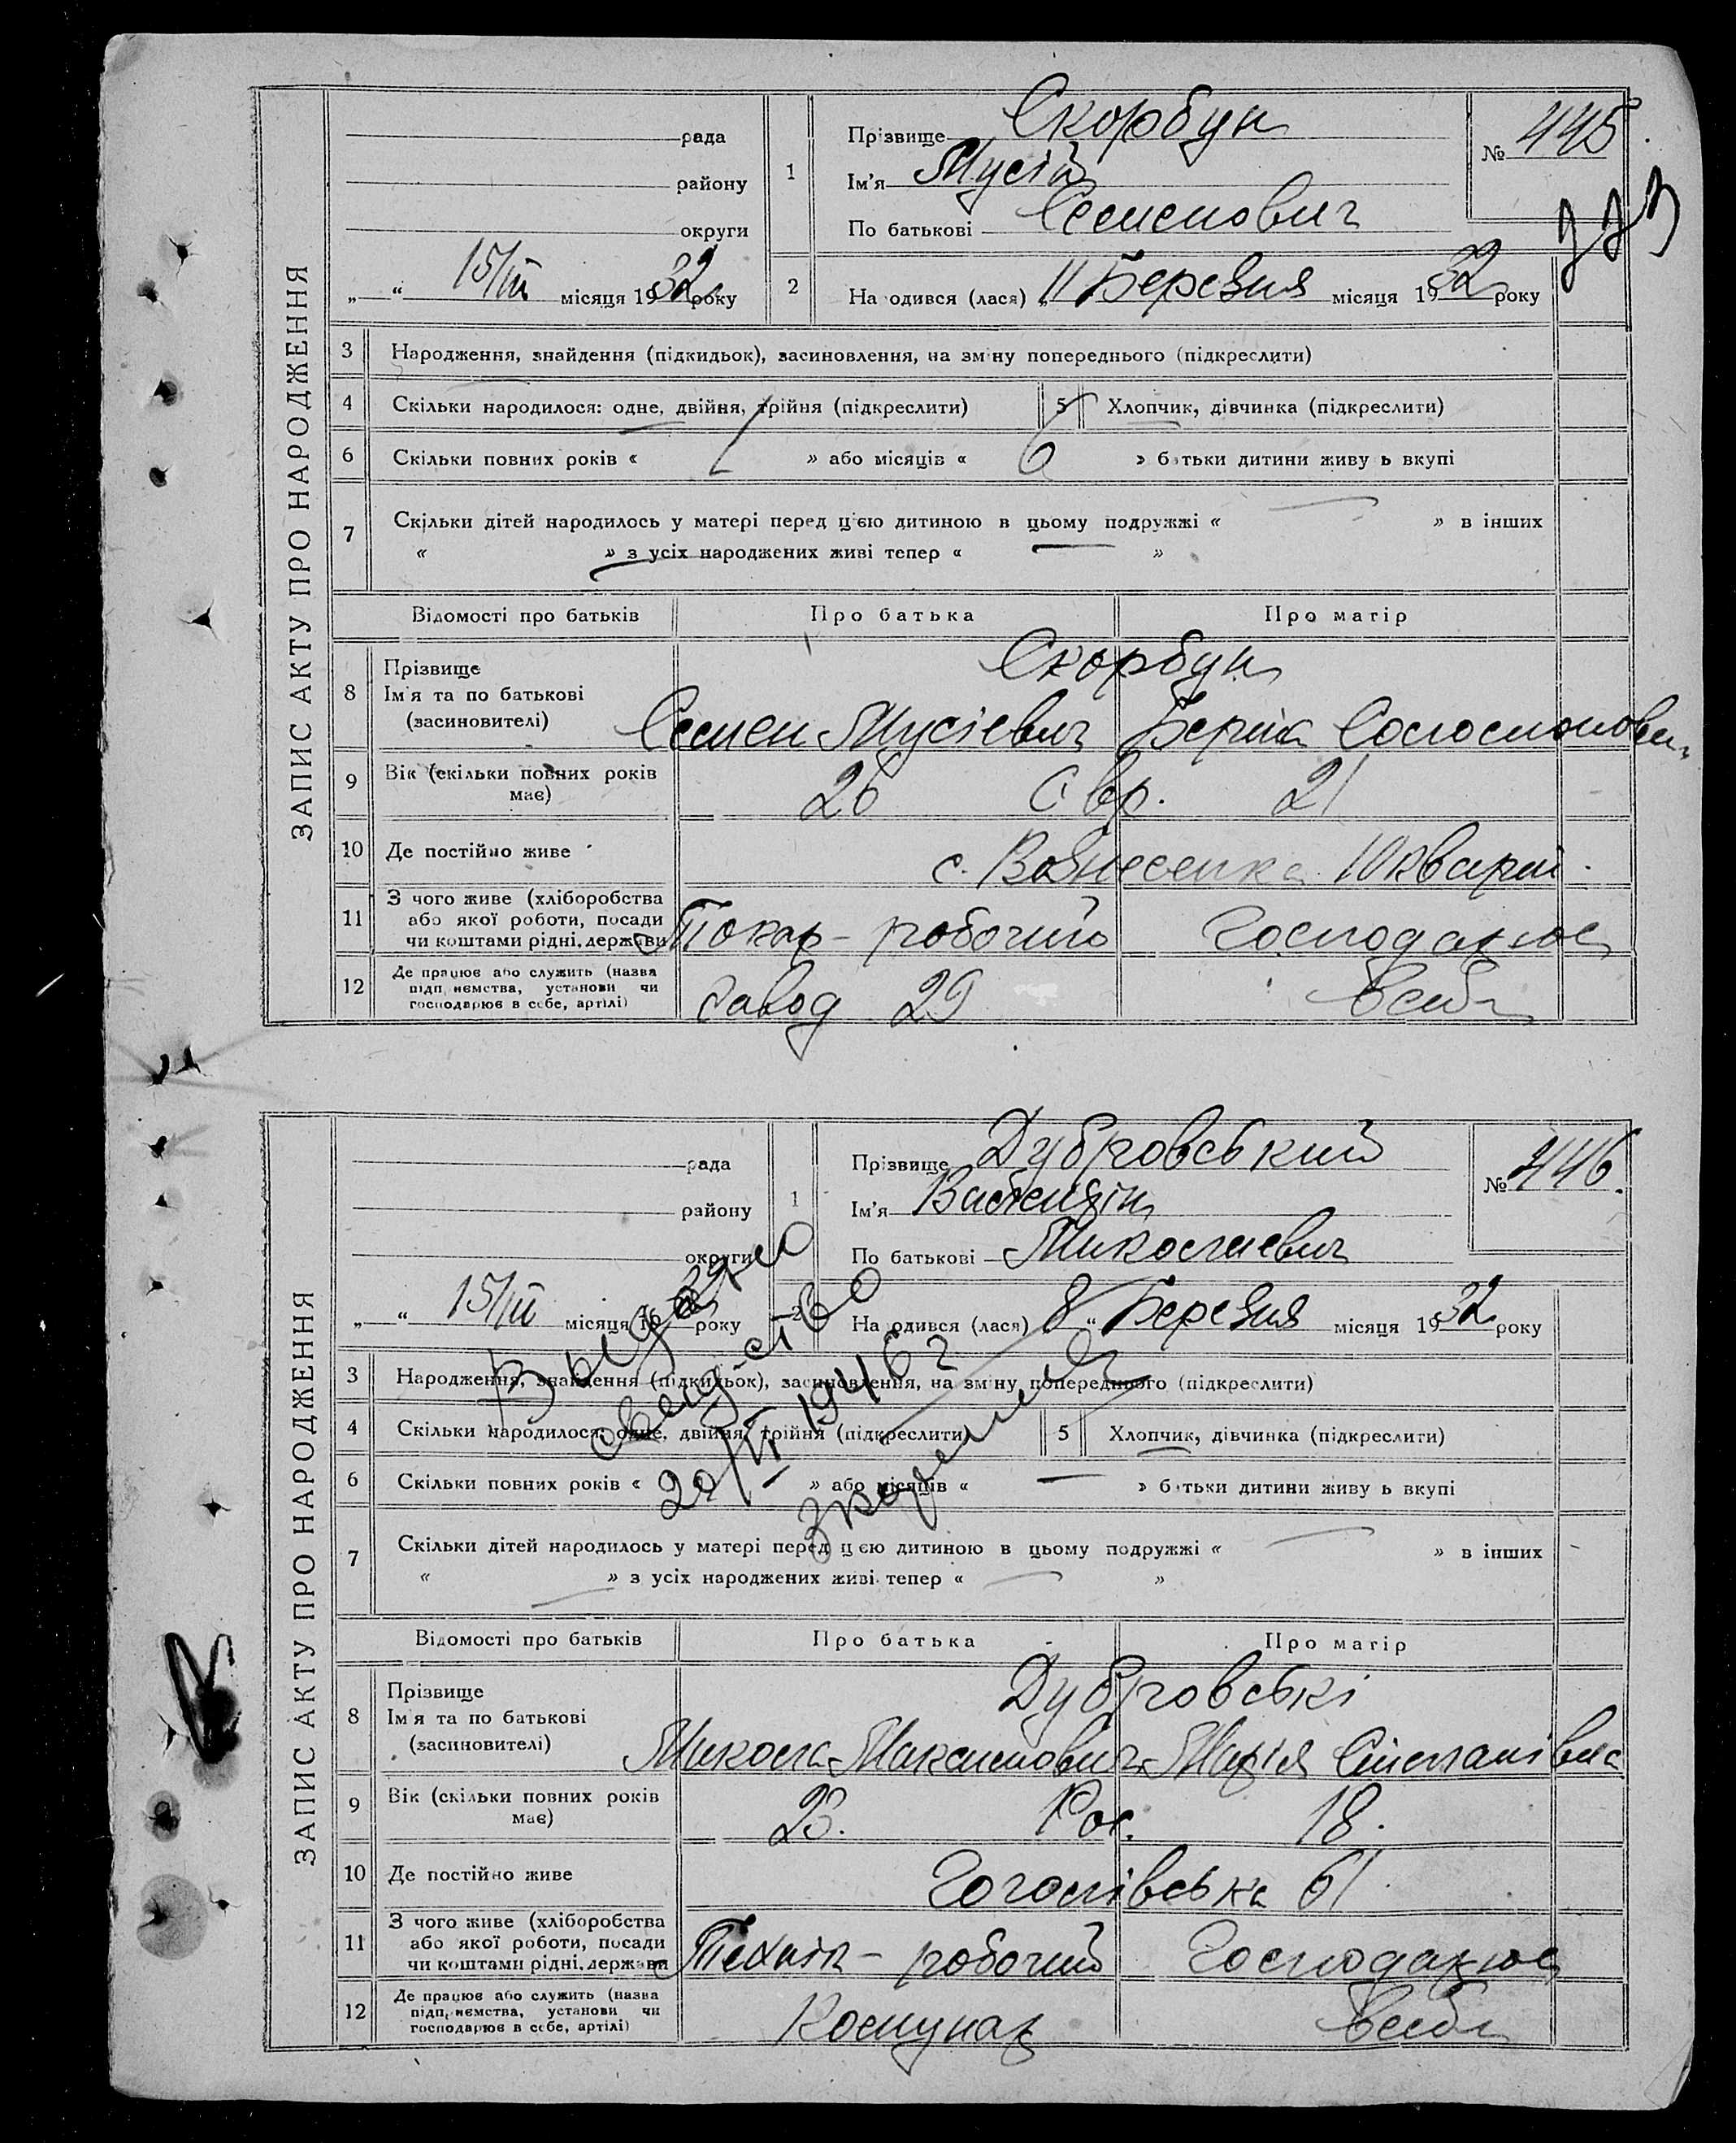 ЗАПИС АКТУ ПРО НАРОДЖЕННЯ
рада
району
округи
„ “ 15/III місяця 1932 року
1
Прізвище Скорбун
Ім'я Мусій
По батькові Семенович
№ 445
2
На одився (лася) „11 Березня місяця 1932 року
3 Народження, знайдення (підкидьок), засиновлення, на зміну попереднього (підкреслити)
4 Скільки народилося: одне, двійня, трійня (підкреслити)
5 Хлопчик, дівчинка (підкреслити)
6 Скільки повних років « » або місяців « 6 » батьки дитини живу ь вкупі
7 Скільки дітей народилось у матері перед цією дитиною в цьому подружжі « — » в інших
« — » з усіх народжених живі тепер « — »
Відомості про батьків Про батька Про матір
8 Прізвище
Ім'я та по батькові
(засиновителі)
Скорбун
Семен Мусієвич Берта
9 Вік (скільки повних років має)
26 Євр. 21
10 Де постійно живе
с. Вознесенка 10 кварт.
11 З чого живе (хліборобства або якої роботи, посади чи коштами рідні, держави
Токар - робочий Господарює
12 Де працює або служить (назва підприємства, установи чи господарює в себе, артілі)
Завод 29 в себе
ЗАПИС АКТУ ПРО НАРОДЖЕННЯ
рада
району
округи
„ “ 15/III місяця 1932 року
1
Прізвище Дубровський
Ім'я Валентін
По батькові Миколаєвич
№ 446.
2
На одився (лася) 8 “ Березня місяця 1932 року
Выдано
свид-ство
20/VI 1946 г
3 Народження, знайдення (підкидьок), засиновлення, на зміну попереднього (підкреслити)
4 Скільки народилося: одне, двійня, трійня (підкреслити)
5 Хлопчик, дівчинка (підкреслити)
6 Скільки повних років « » або місяців « — » батьки дитини живу ь вкупі
7 Скільки дітей народилось у матері перед цією дитиною в цьому подружжі « — » в інших
« — » з усіх народжених живі тепер « — »
Відомості про батьків Про батька Про матір
8 Прізвище
Ім'я та по батькові
(засиновителі)
Дубровські
Микола Максимович Марія Степанівна
9 Вік (скільки повних років має)
23. Рос. 18.
10 Де постійно живе
Гоголівська 61
11 З чого живе (хліборобства або якої роботи, посади чи коштами рідні, держави
Технік - робочий Господарює
12 Де працює або служить (назва підприємства, установи чи господарює в себе, артілі)
Комунар в себе